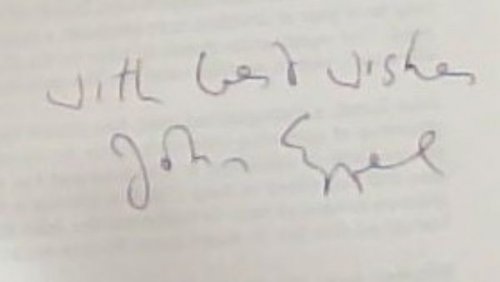 with best wishes
John Eppel